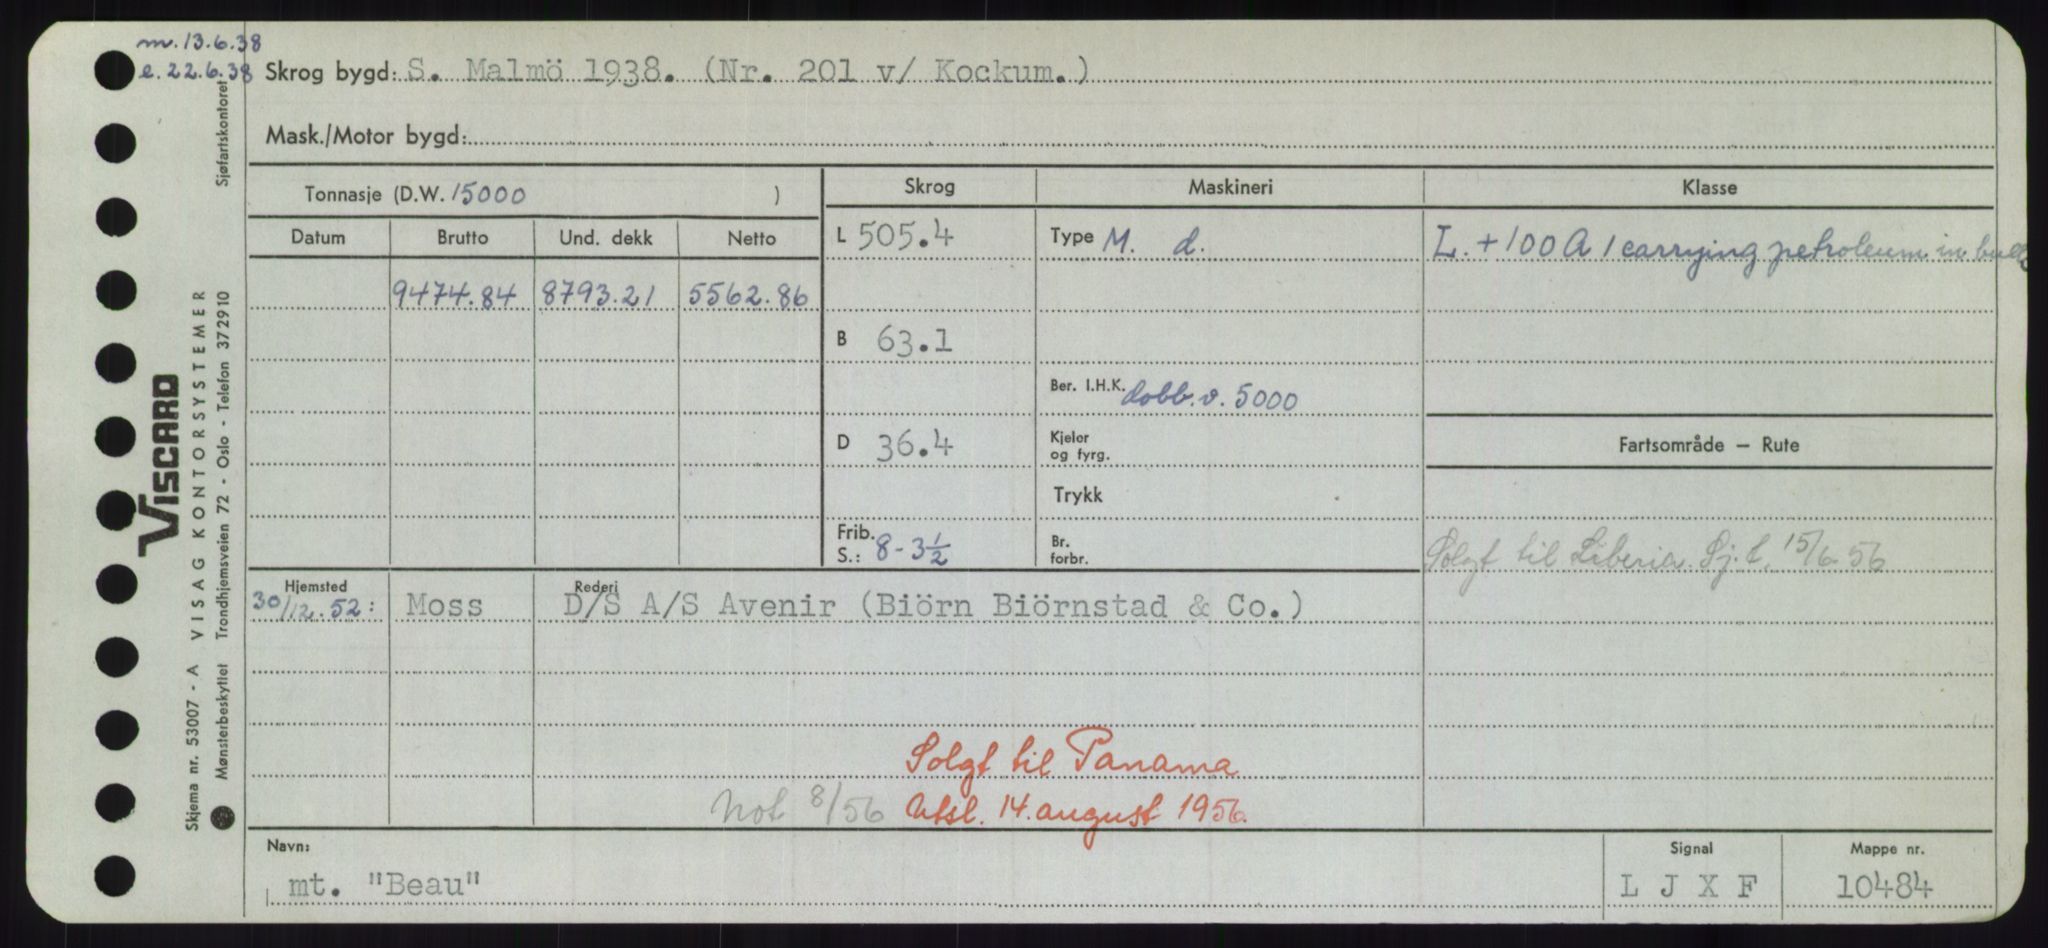 m. 13.6.38
e. 22.6.38
Skrog bygd: S. Malmö 1938. (Nr. 201 v/ Kockum.)
Mask./Motor bygd:
Tonnasje (D.W. 15000 )
Skrog
Maskineri
Klasse
Datum
Brutto
Und. dekk
Netto
9474.84
8793.21
5562.86
L 505.4
B 63.1
D 36.4
Frib.
S.: 8-3½
Type M. d.
Ber. I.H.K. dobb.v. 5000
Kjeler
og fyrg.
Trykk
Br.
forbr.
L. +100 A 1 carrying petroleum in bulk
Fartsområde — Rute
Solgt til Liberia. Sj.t. 15/6 56
Hjemsted
Rederi
30/12.52: Moss D/S A/S Avenir (Biörn Biörnstad & Co.)
Solgt til Panama
Not 8/56 Utsl. 14. august 1956.
Navn:
mt. "Beau"
Signal
L J X F
Mappe nr.
10484
Skjema nr. 53007 - A VISAG KONTORSYSTEMER
Mønsterbeskyttet Trondhjemsveien 72 - Oslo - Telefon 372910 Sjøfartskontoret
VISCARD